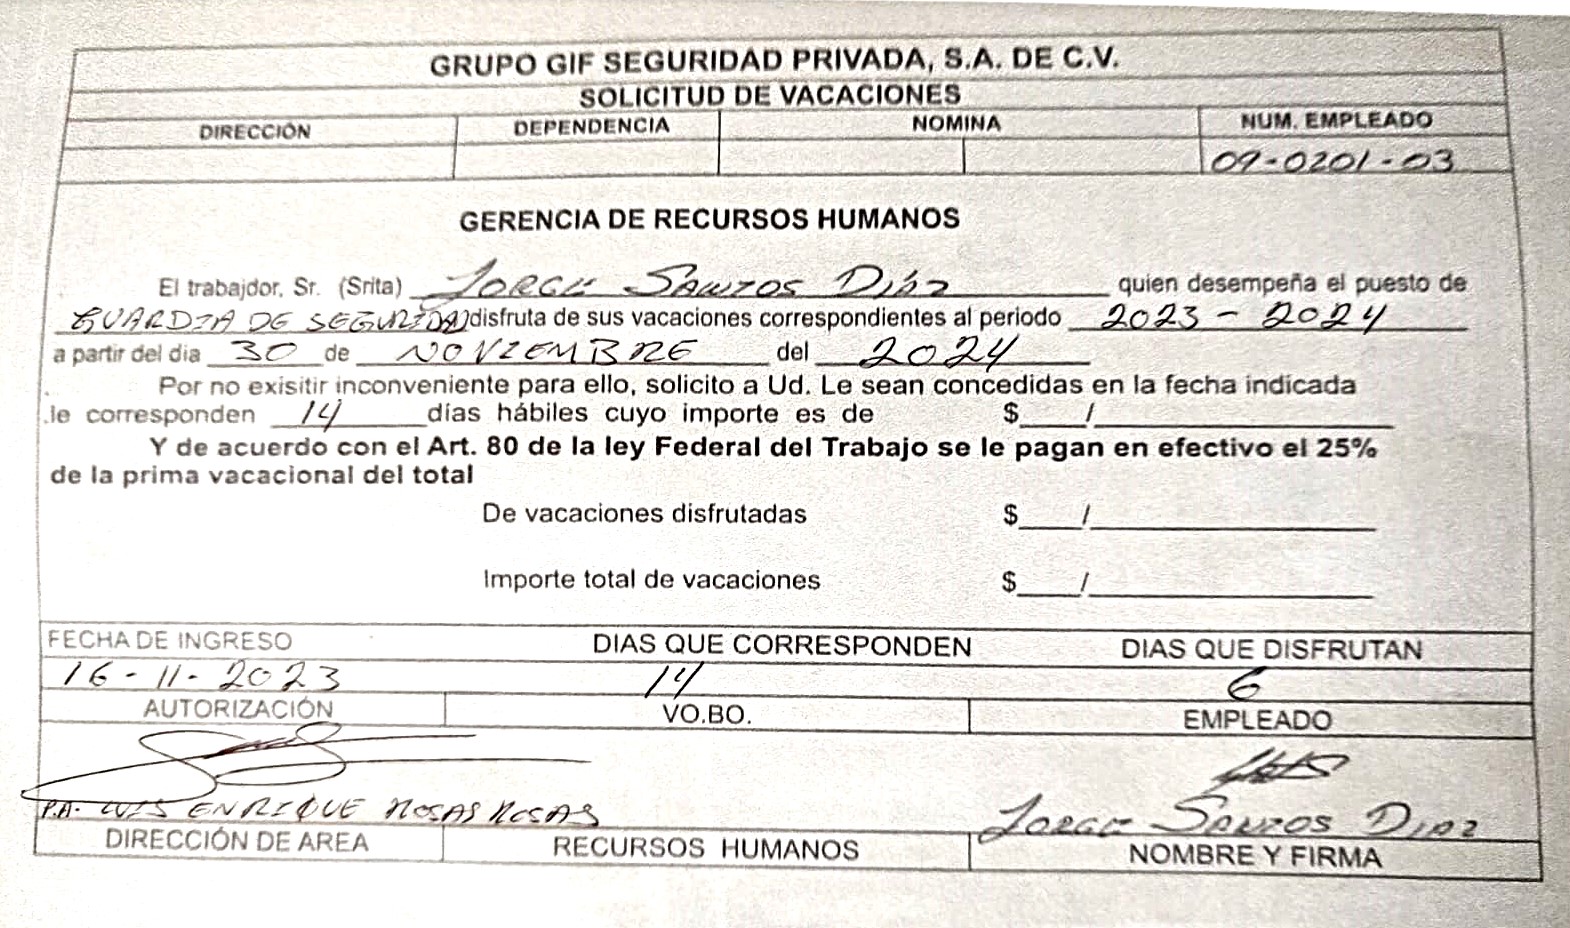 GRUPO GIF SEGURIDAD PRIVADA, S.A. DE C.V.
SOLICITUD DE VACACIONES
DIRECCIÓN DEPENDENCIA NOMINA NUM. EMPLEADO
09-0201-03
GERENCIA DE RECURSOS HUMANOS
El trabajdor, Sr. (Srita) JORGE SANTOS DÍAZ quien desempeña el puesto de
GUARDIA DE SEGURIDAD disfruta de sus vacaciones correspondientes al periodo 2023 - 2024
a partir del dia 30 de NOVIEMBRE del 2024
Por no exisitir inconveniente para ello, solicito a Ud. Le sean concedidas en la fecha indicada
.le corresponden 14 días hábiles cuyo importe es de $ /
Y de acuerdo con el Art. 80 de la ley Federal del Trabajo se le pagan en efectivo el 25%
de la prima vacacional del total
De vacaciones disfrutadas $ /
Importe total de vacaciones $ /
FECHA DE INGRESO DIAS QUE CORRESPONDEN DIAS QUE DISFRUTAN
16-11-2023 14 6
AUTORIZACIÓN VO.BO. EMPLEADO
P.A. LUIS ENRIQUE ROSAS ROSAS JORGE SANTOS DIAZ
DIRECCIÓN DE AREA RECURSOS HUMANOS NOMBRE Y FIRMA